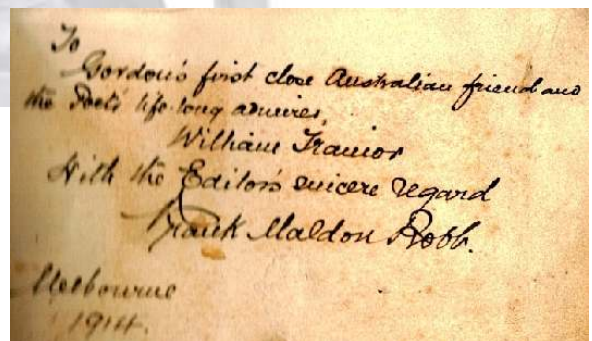 To
Gordon's first close Australian friend and
the Poet's life-long admirer,
William Trainor
With the Editor's sincere regard
Frank Maldon Robb.
Melbourne
1914.